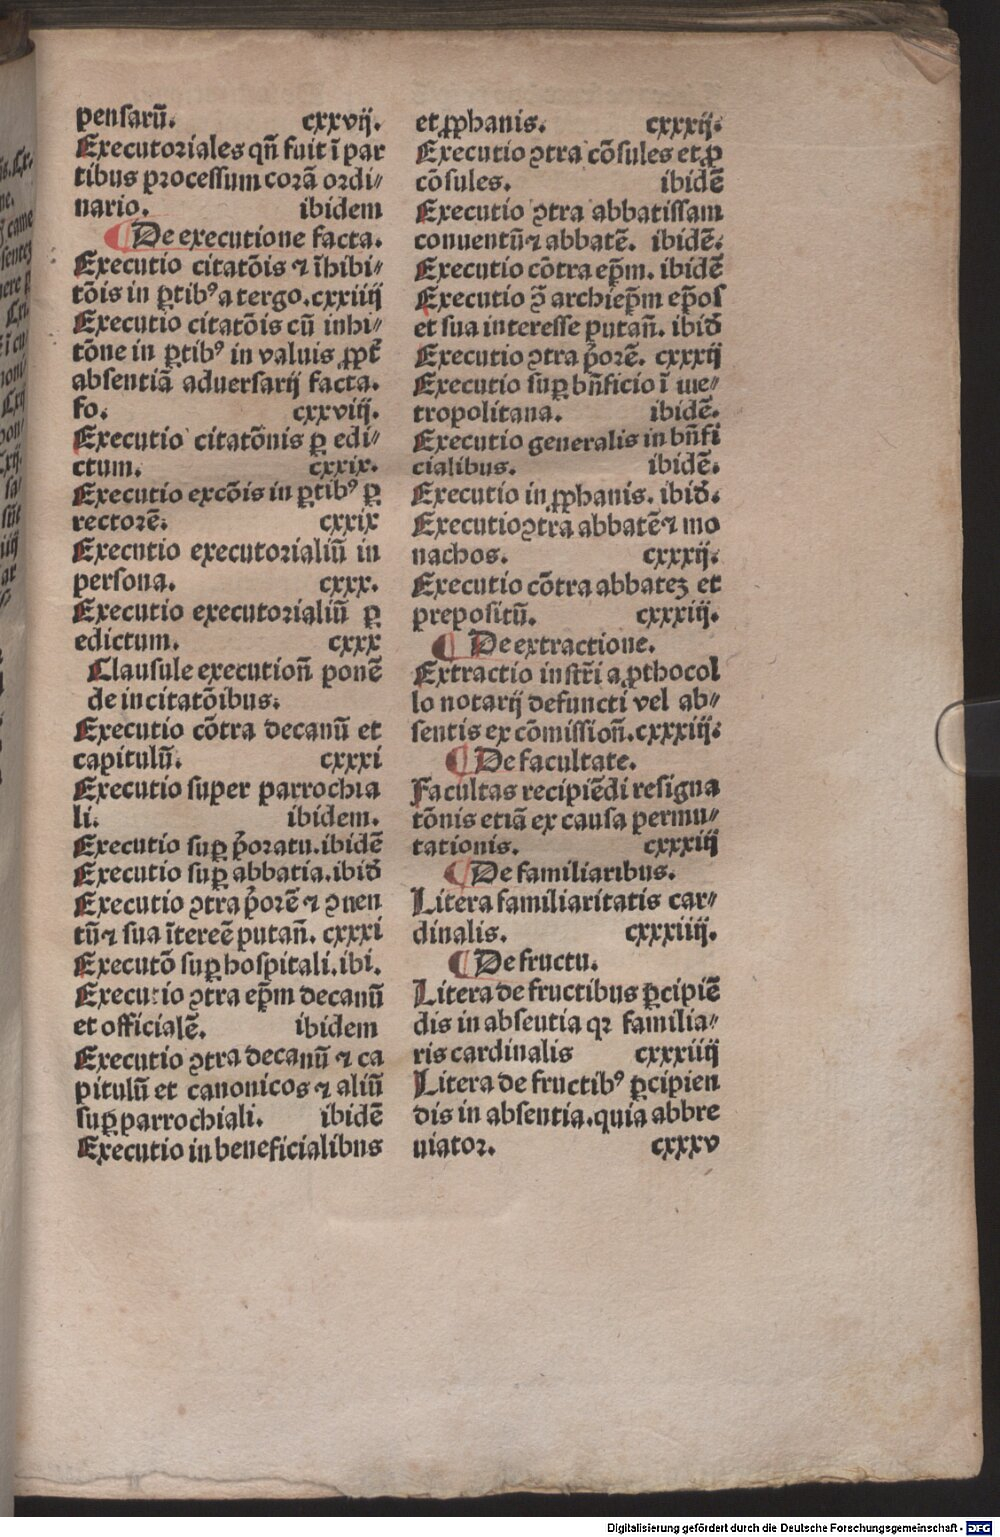 pensarū. cxxvij.
Executoriales qn̄ fuit ī par
tibus processum corā ordi⸗
nario. ibidem
¶ De executione facta.
Executio citatōis ⁊ īhibi⸗
tōis in ꝑtibꝰ a tergo. cxxiiij
Executio citatōis cū inhi⸗
tōne in ꝑtibꝰ in valuis ꝓpt̄
absentiā aduersarij facta.
fo. cxxviij.
Executio citatōnis ꝑ edi⸗
ctum. cxxix.
Executio excōis in ꝑtibꝰ ꝑ
rectorē. cxxix
Execntio executorialiū in
persona. cxxx.
Executio executorialiū ꝑ
edictum. cxxx
Clausule execution̄ ponē
de in citatōibus.
Executio cōtra decanū et
capitulū. cxxxi
Executio super parrochia
li. ibidem.
Executio suꝑ p̄oratu. ibidē
Executio suꝑ abbatia. ibid̄
Executio ꝯtra p̄orē ⁊ ꝯuen
tū ⁊ sua ītereē putan̄. cxxxi
Executō suꝑ hospitali. ibi.
Executio ꝯtra ep̄m decanū
et officialē. ibidem
Executio ꝯtra decanū ⁊ ca
pitulū et canonicos ⁊ aliū
suꝑ parrochiali. ibidē
Executio in beneficialibns
et ꝓphanis. cxxxij.
Executio ꝯtra cōsules et ꝓ
cōsules. ibidē
Executio ꝯtra abbatissam
conuentū ⁊ abbatē. ibidē.
Executio cōtra ep̄m. ibidē
Executio ꝯ̄ archiep̄m ep̄os
et sua interesse putan̄. ibid̄
Executio ꝯtra p̄orē. cxxxij
Executio suꝑ bn̄ficio ī me⸗
tropolitana. ibidē.
Executio generalis in bn̄fi
cialibus. ibidē.
Executio in ꝓphanis. ibid̄.
Executio ꝯtra abbatē ⁊ mo
nachos. cxxxij.
Executio cōtra abbateꝫ et
prepositū. cxxxiij.
¶ De extractione.
Extractio instr̄i a ꝓthocol
lo notarij defuncti vel ab⸗
sentis ex cōmission̄. cxxxiij.
¶ De facultate.
Facultas recipiēdi resigna
tōnis etiā ex causa permu⸗
tationis. cxxxiij
¶ De familiaribus.
Litera familiaritatis car⸗
dinalis. cxxxiiij.
¶ De fructu.
Litera de fructibus ꝑcipiē
dis in absentia qꝛ familia⸗
ris cardinalis cxxxiiij
Litera de fructibꝰ ꝑcipien
dis in absentia. quia abbre
uiator. cxxxv
Digitalisierung gefördert durch die Deutsche Forschungsgemeinschaft - DFG